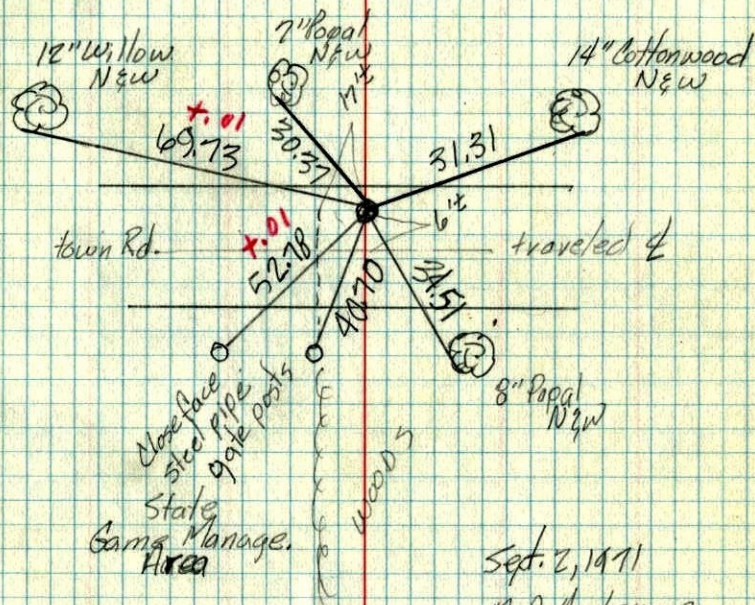 12" Willow
N&W
7" Popal
N&W
14" Cottonwood
N&W
+.01
69.73
30.37
17'±
31.31
6'±
town Rd.
+.01
52.78
40.70
34.51
traveled ℄
8" Popal
N&W
Close face
steel pipe
gate posts
woods
State
Game Manage.
Area
Sept. 2, 1971